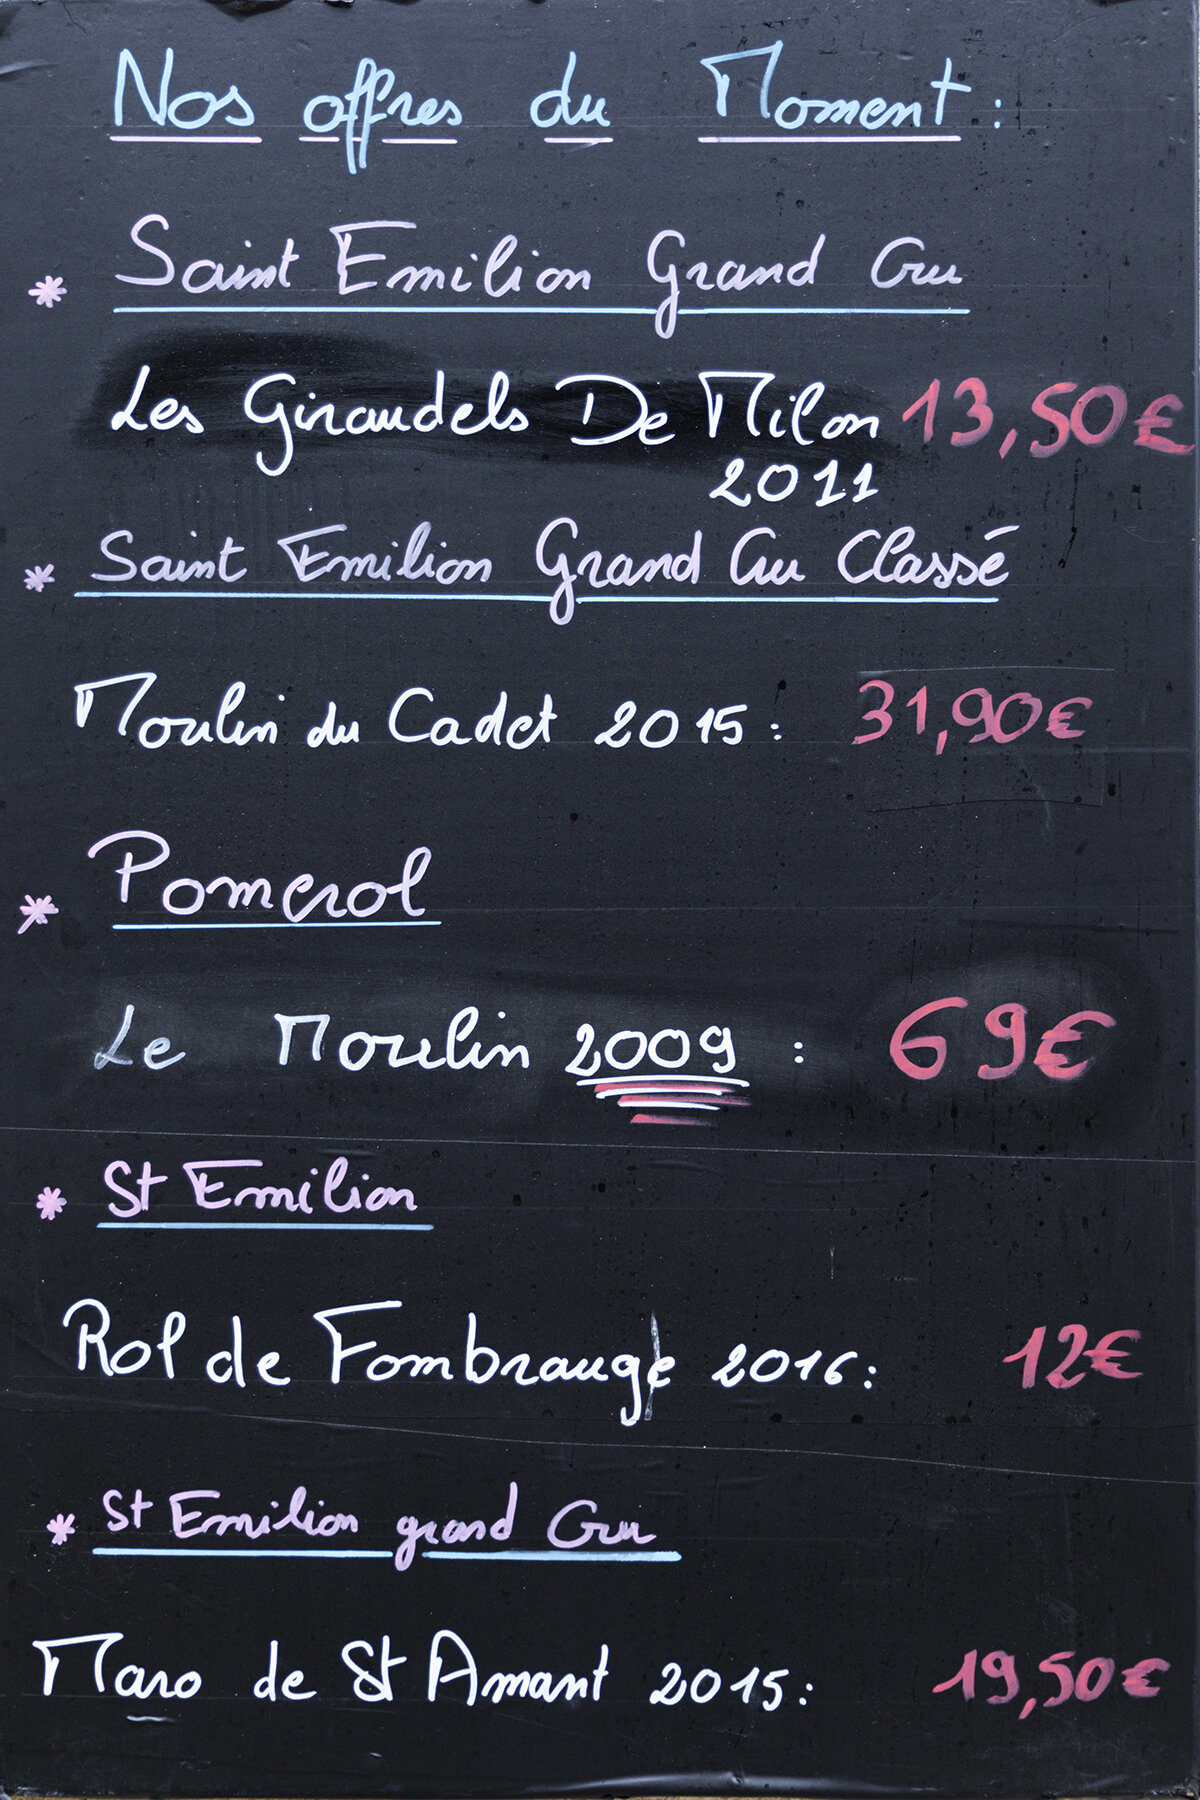 Nos offres du Moment :
* Saint Emilion Grand Cru
Les Giraudels De Milon 13,50€
2011
* Saint Emilion Grand Cru Classé
Moulin du Cadet 2015 : 31,90€
* Pomerol
Le Moulin 2009 : 69€
* St Emilion
Rol de Fombrauge 2016 : 12€
* St Emilion grand Cru
Maro de St Amant 2015 : 19,50€